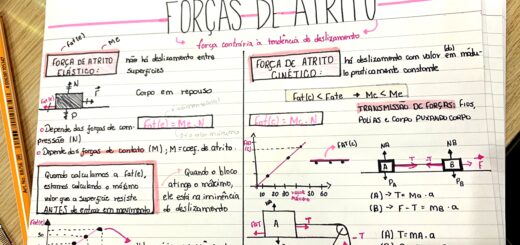 FORÇAS DE ATRITO
Fat(e) Me
força contrária à tendência do deslizamento
FORÇA DE ATRITO
ELÁSTICO:
não há deslizamento entre
superfícies
N
F
Fat(e)
P
Corpo em repouso
Fat(e) = Me . N
Depende das forças de com-
pressão (N)
Depende das forças de contato (M); M = coef. de atrito.
Quando calculamos a Fat(e),
estamos calculando o máximo
valor que a superfície resiste
ANTES de entrar em movimento
Quando o bloco
atinge o máximo,
ele está na iminência
do deslizamento
Fat(e)
50
FORÇA DE ATRITO
CINÉTICO:
há deslizamento com valor em módu-
(do)
lo praticamente constante
Fat(c) < Fate → Mc < Me
Fat(c) = Mc . N
TRANSMISSÃO DE FORÇAS: FIOS,
POLIAS e CORPO PUXANDO CORPO
FAT(c)
10 20 30 40 50 60
NA NB
A T T B F
PA PB
(A) → T = Ma . a
(B) → F - T = mB . a
FAT A T
T